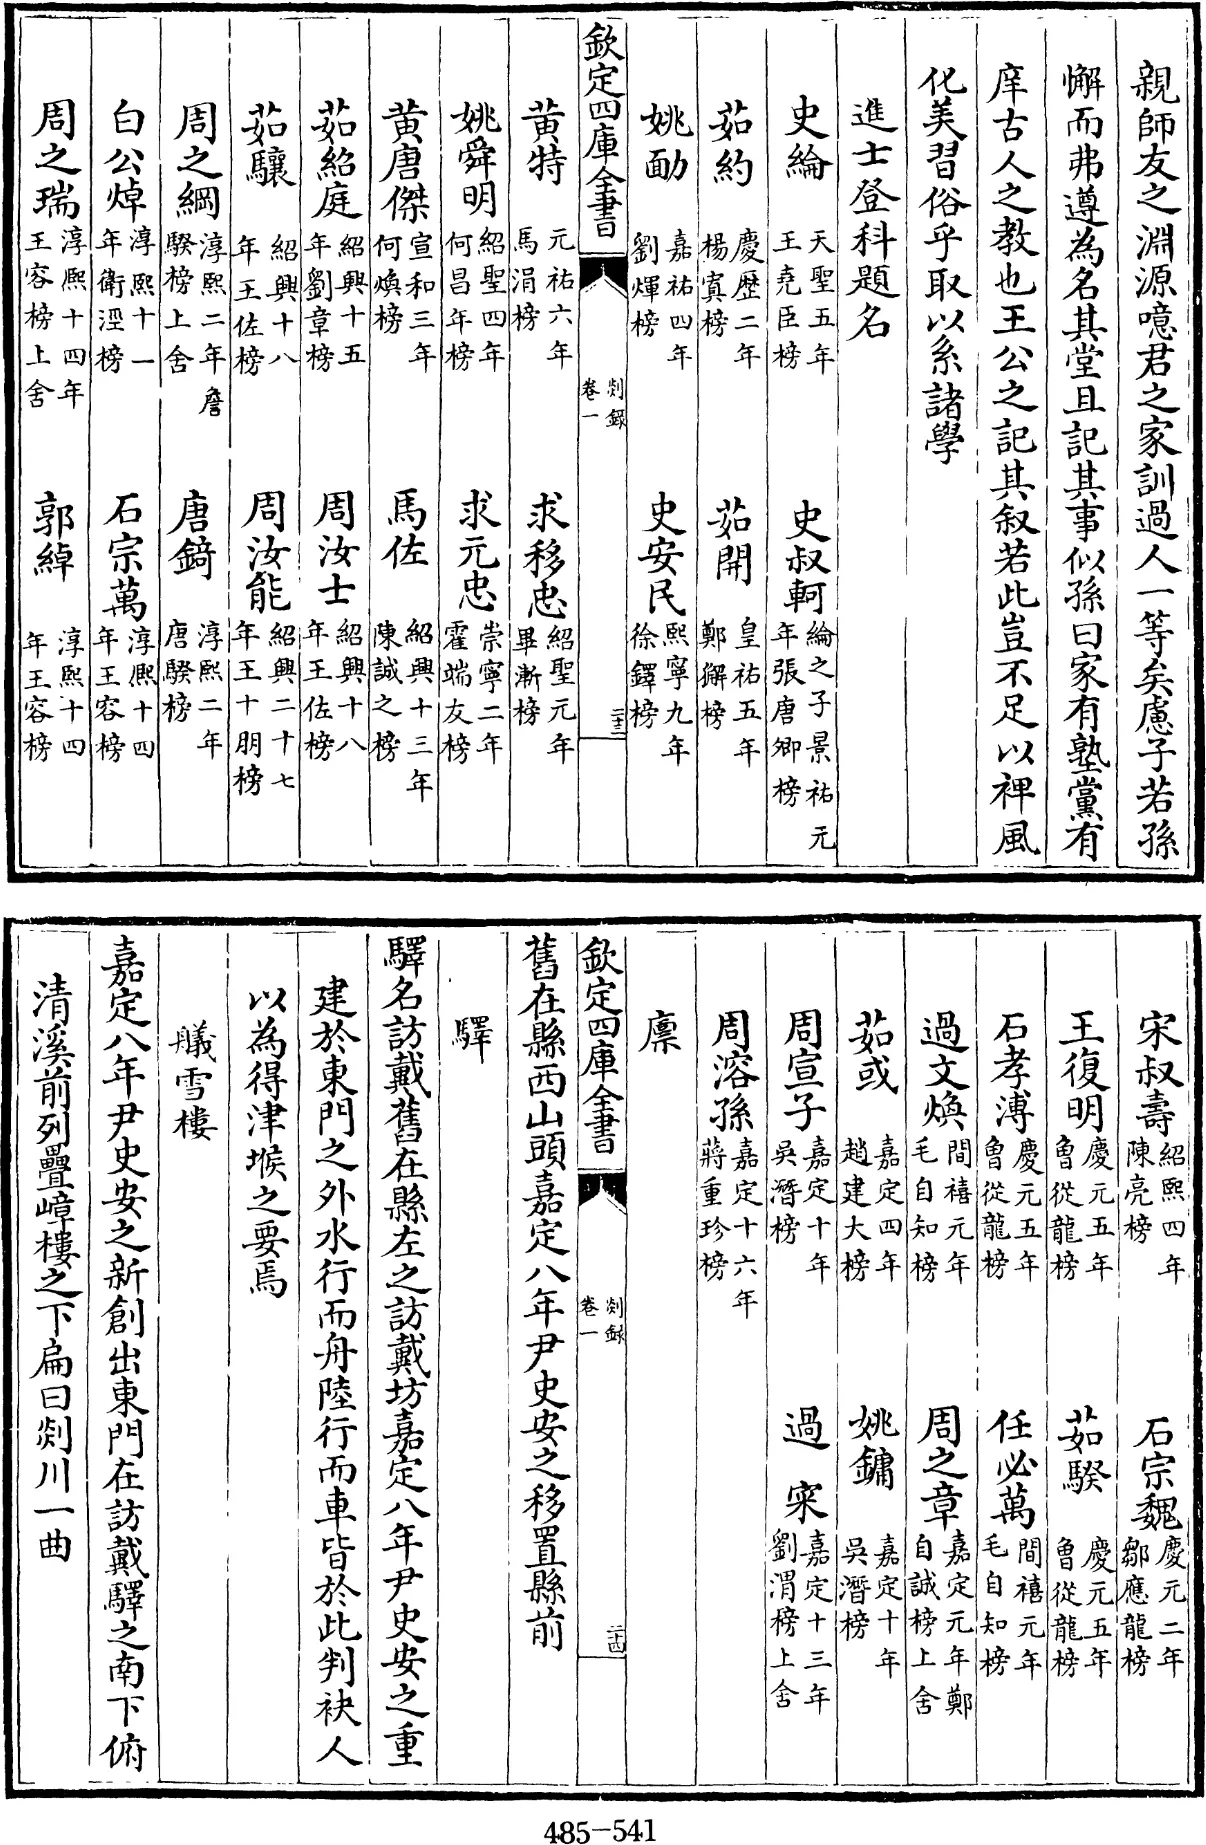 親師友之淵源噫君之家訓過人一等矣慮子若孫
懈而弗遵為名其堂且記其事似孫曰家有塾黨有
庠古人之教也王公之記其叙若此豈不足以裨風
化美習俗乎取以系諸學
進士登科題名
史綸 天聖五年王堯臣榜 史叔軻 綸之子景祐元年張唐卿榜
茹約 慶歴二年楊寘榜 茹開 皇祐五年鄭獬榜
姚勔 嘉祐四年劉煇榜 史安民 熙寧九年徐鐸榜
欽定四庫全書 剡録 卷一 二十三
黄特 元祐六年馬涓榜 求移忠 紹聖元年畢漸榜
姚舜明 紹聖四年何昌年榜 求元忠 崇寧二年霍端友榜
黄唐傑 宣和三年何煥榜 馬佐 紹興十三年陳誠之榜
茹紹庭 紹興十五年劉章榜 周汝士 紹興十八年王佐榜
茹驤 紹興十八年王佐榜 周汝能 紹興二十七年王十朋榜
周之綱 淳熙二年詹騤榜上舍 唐錡 淳熙二年唐騤榜
白公焯 淳熙十一年衛涇榜 石宗萬 淳熙十四年王容榜
周之瑞 淳熙十四年王容榜上舍 郭綽 淳熙十四年王容榜
宋叔壽 紹熙四年陳亮榜 石宗魏 慶元二年鄒應龍榜
王復明 慶元五年曾從龍榜 茹騤 慶元五年曾從龍榜
石孝溥 慶元五年曾從龍榜 任必萬 間禧元年毛自知榜
過文煥 間禧元年毛自知榜 周之章 嘉定元年鄭自誠榜上舍
茹或 嘉定四年趙建大榜 姚鏞 嘉定十年吳潛榜
周宣子 嘉定十年吳潛榜 過 寀 嘉定十三年劉渭榜上舍
周溶孫 嘉定十六年蔣重珍榜
廪
欽定四庫全書 剡録 卷一 二十四
舊在縣西山頭嘉定八年尹史安之移置縣前
驛
驛名訪戴舊在縣左之訪戴坊嘉定八年尹史安之重
建於東門之外水行而舟陸行而車皆於此判袂人
以為得津堠之要焉
艤雪樓
嘉定八年尹史安之新創出東門在訪戴驛之南下俯
清溪前列疊嶂樓之下扁曰剡川一曲
485-541